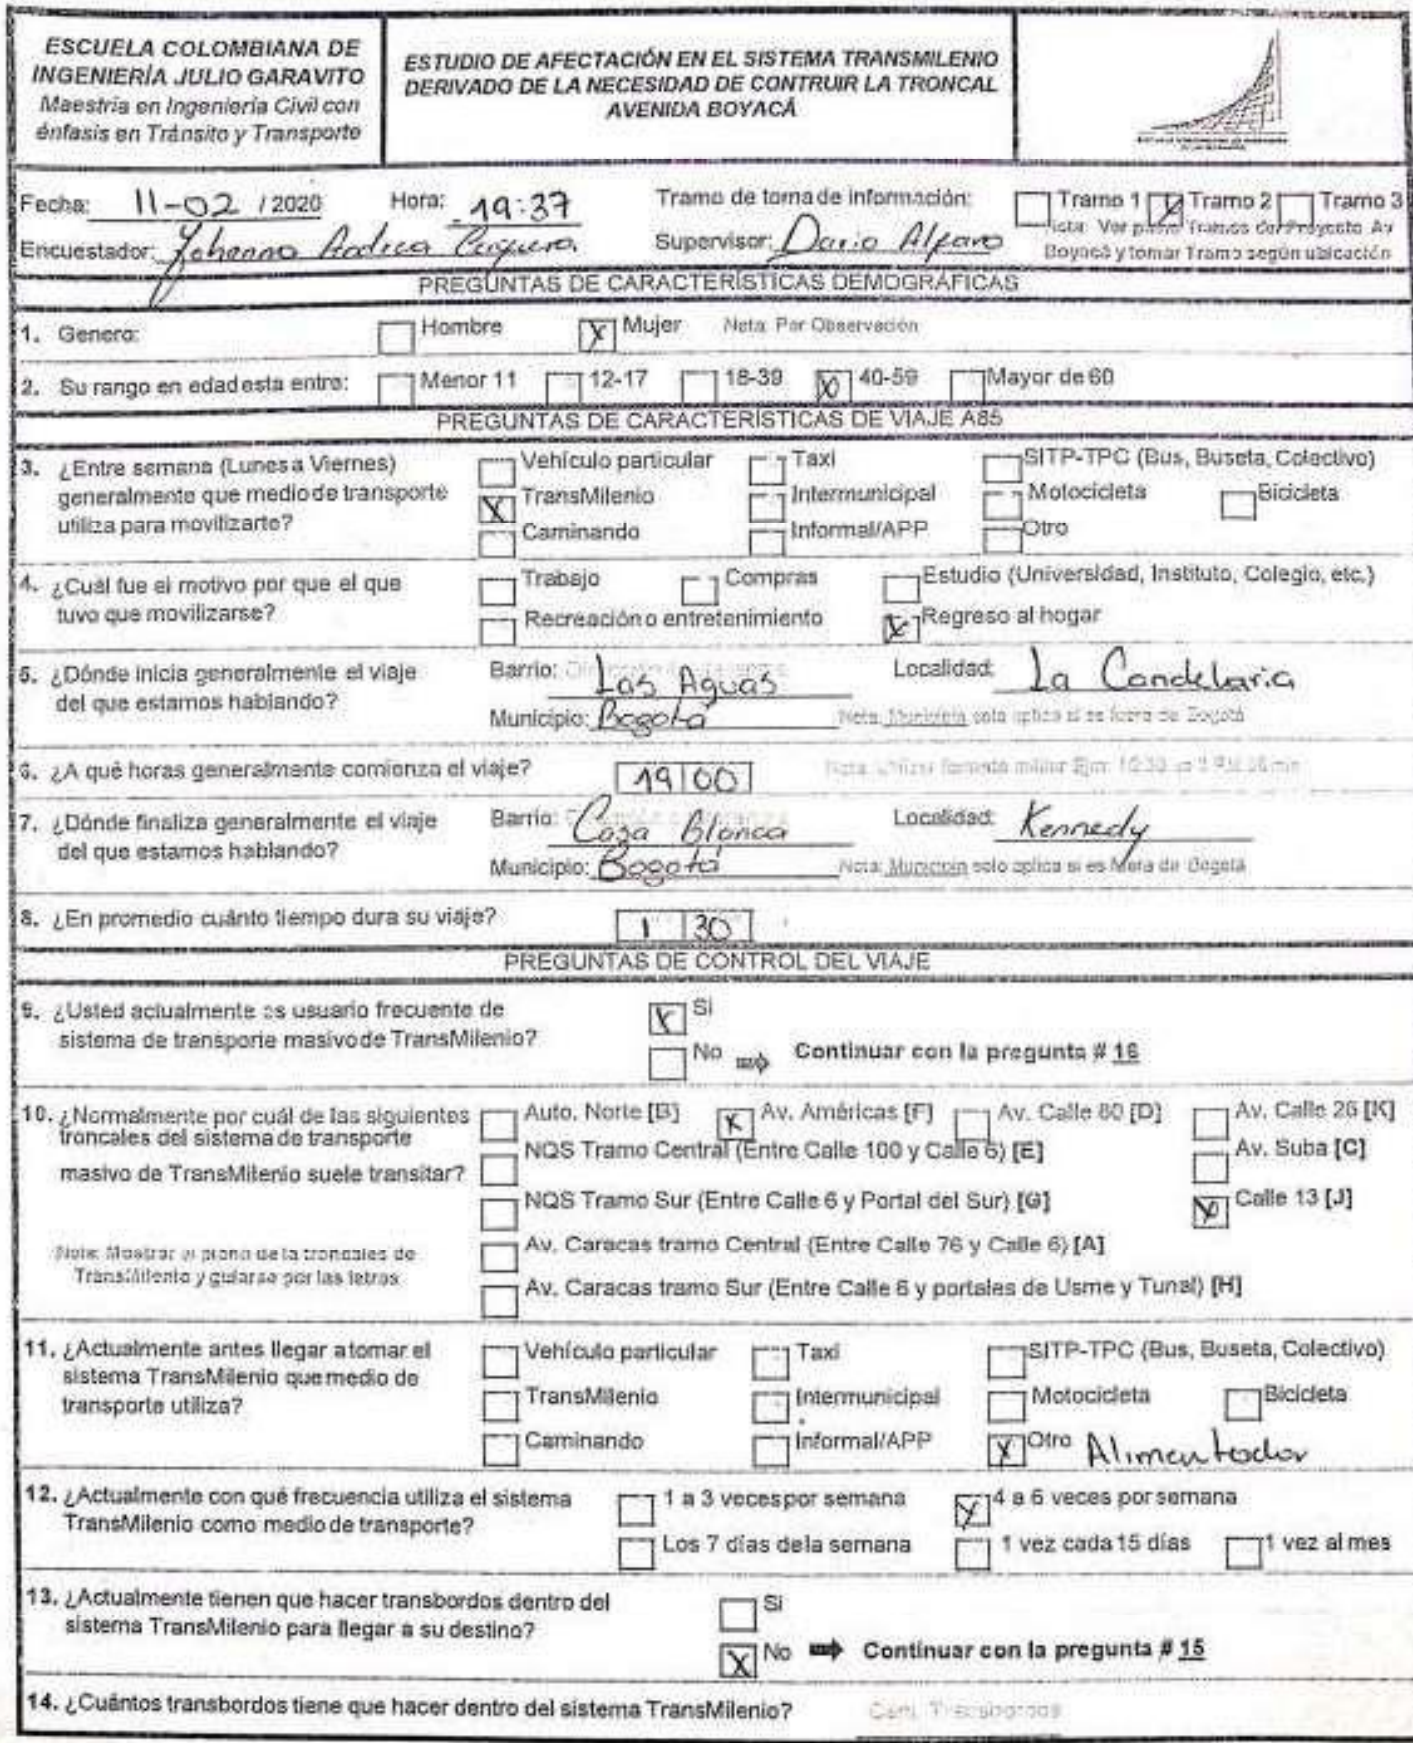 ESCUELA COLOMBIANA DE
INGENIERÍA JULIO GARAVITO
Maestría en Ingeniería Civil con
énfasis en Tránsito y Transporte
ESTUDIO DE AFECTACIÓN EN EL SISTEMA TRANSMILENIO
DERIVADO DE LA NECESIDAD DE CONTRUIR LA TRONCAL
AVENIDA BOYACÁ
Fecha: 11-02 / 2020 Hora: 19:37 Tramo de toma de información: Tramo 1 Tramo 2 Tramo 3
Nota: Ver plano Tramos del Proyecto Av
Boyacá y tomar Tramo según ubicación
Encuestador: Johanna Andrea Supervisor: Dario Alfaro
PREGUNTAS DE CARACTERÍSTICAS DEMOGRÁFICAS
1. Genero: Hombre X Mujer Nota: Por Observación
2. Su rango en edad esta entre: Menor 11 12-17 18-39 X 40-59 Mayor de 60
PREGUNTAS DE CARACTERÍSTICAS DE VIAJE A85
3. ¿Entre semana (Lunes a Viernes)
generalmente que medio de transporte
utiliza para movilizarte?
Vehículo particular Taxi SITP-TPC (Bus, Buseta, Colectivo)
X TransMilenio Intermunicipal Motocicleta Bicicleta
Caminando Informal/APP Otro
4. ¿Cuál fue el motivo por que el que
tuvo que movilizarse?
Trabajo Compras Estudio (Universidad, Instituto, Colegio, etc.)
Recreación o entretenimiento X Regreso al hogar
5. ¿Dónde inicia generalmente el viaje
del que estamos hablando?
Barrio: Las Aguas Localidad: La Candelaria
Municipio: Bogotá Nota: Municipio solo aplica si es fuera de Bogotá
6. ¿A qué horas generalmente comienza el viaje? 19 00
7. ¿Dónde finaliza generalmente el viaje
del que estamos hablando?
Barrio: Casa Blanca Localidad: Kennedy
Municipio: Bogotá Nota: Municipio solo aplica si es fuera de Bogotá
8. ¿En promedio cuánto tiempo dura su viaje? 1 30
PREGUNTAS DE CONTROL DEL VIAJE
9. ¿Usted actualmente es usuario frecuente de
sistema de transporte masivo de TransMilenio?
X Si
No ⇒ Continuar con la pregunta # 16
10. ¿Normalmente por cuál de las siguientes
troncales del sistema de transporte
masivo de TransMilenio suele transitar?
Nota: Mostrar el plano de la troncales de
TransMilenio y guiarse por las letras
Auto. Norte [B] X Av. Américas [F] Av. Calle 80 [D] Av. Calle 26 [K]
NQS Tramo Central (Entre Calle 100 y Calle 6) [E] Av. Suba [C]
NQS Tramo Sur (Entre Calle 6 y Portal del Sur) [G] X Calle 13 [J]
Av. Caracas tramo Central (Entre Calle 76 y Calle 6) [A]
Av. Caracas tramo Sur (Entre Calle 6 y portales de Usme y Tunal) [H]
11. ¿Actualmente antes llegar a tomar el
sistema TransMilenio que medio de
transporte utiliza?
Vehículo particular Taxi SITP-TPC (Bus, Buseta, Colectivo)
TransMilenio Intermunicipal Motocicleta Bicicleta
Caminando Informal/APP X Otro Alimentador
12. ¿Actualmente con qué frecuencia utiliza el sistema
TransMilenio como medio de transporte?
1 a 3 veces por semana X 4 a 6 veces por semana
Los 7 días de la semana 1 vez cada 15 días 1 vez al mes
13. ¿Actualmente tienen que hacer transbordos dentro del
sistema TransMilenio para llegar a su destino?
Si
X No ⇒ Continuar con la pregunta # 15
14. ¿Cuántos transbordos tiene que hacer dentro del sistema TransMilenio? Cant. Transbordos